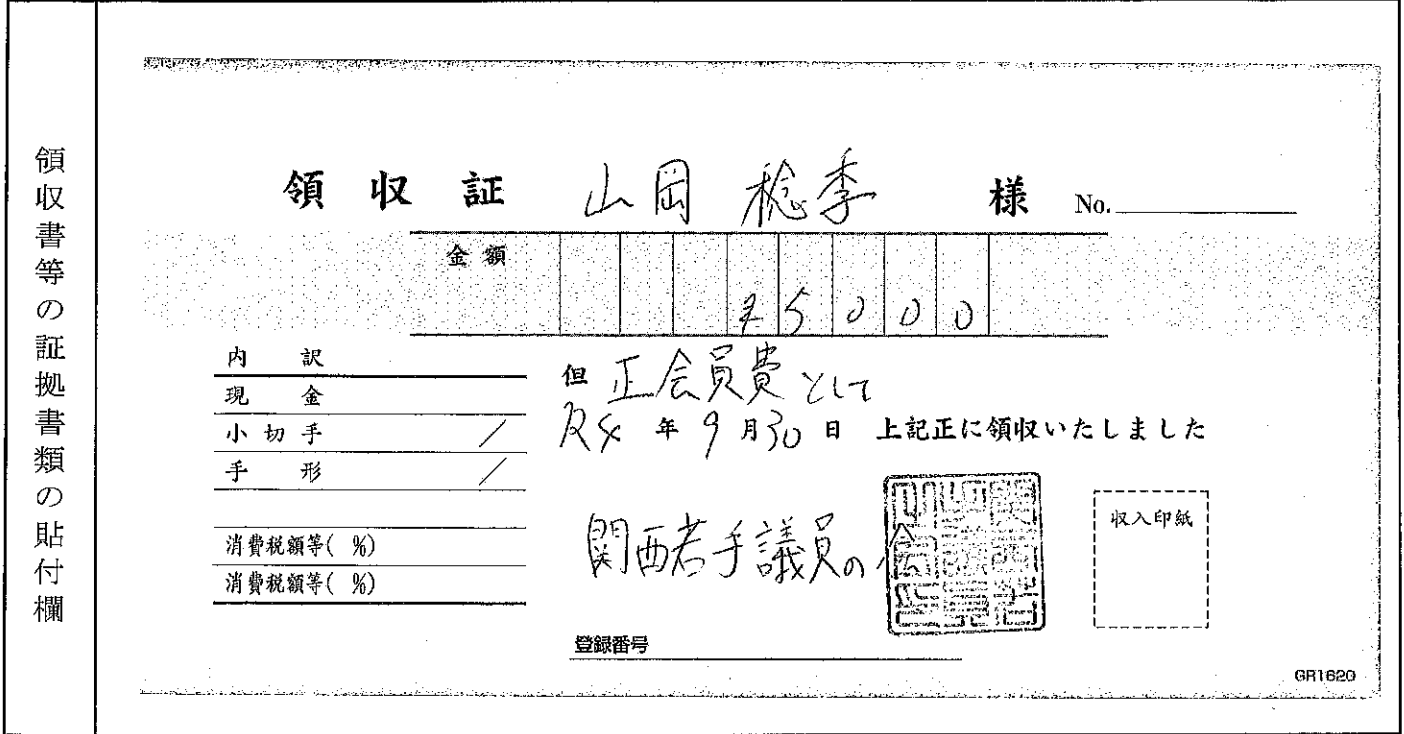 領収書等の証拠書類の貼付欄
領収証 山岡 稔季 様 No.
金額 ¥5000
内訳
現金
小切手 /
手形 /
消費税額等( %)
消費税額等( %)
但 正会員費として
R4年9月30日 上記正に領収いたしました
関西若手議員の会
収入印紙
登録番号
GR1620